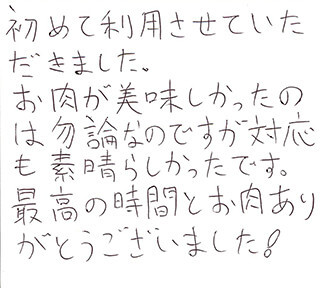 初めて利用させていた
だきました。
お肉が美味しかったの
は勿論なのですが対応
も素晴らしかったです。
最高の時間とお肉あり
がとうございました!